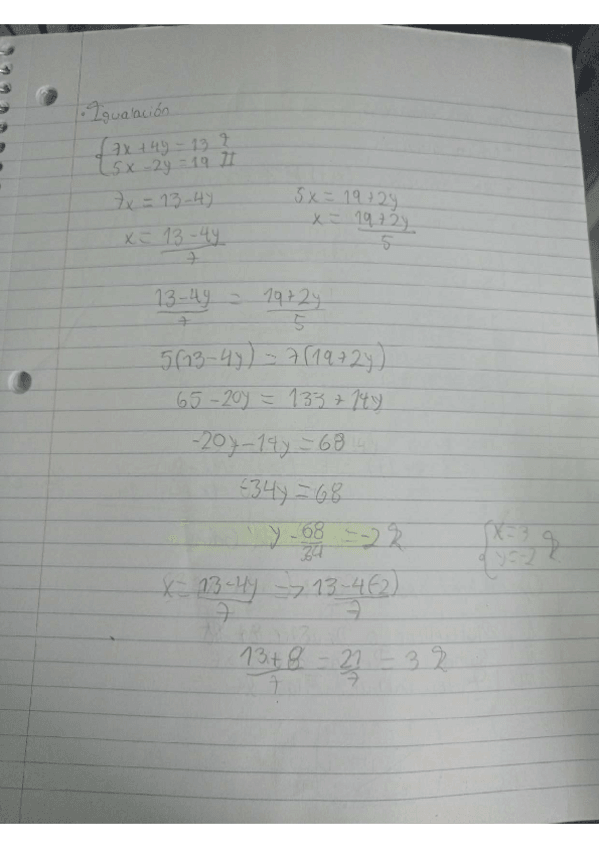 · Igualación
7x + 4y = 13 I
5x - 2y = 19 II
7x = 13 - 4y
5x = 19 + 2y
x = 13 - 4y / 7
x = 19 + 2y / 5
13 - 4y / 7 = 19 + 2y / 5
5(13 - 4y) = 7(19 + 2y)
65 - 20y = 133 + 14y
-20y - 14y = 68
-34y = 68
y - 68 / 34 = -2
{ x = 3
y = -2
x = 13 - 4y / 7 => 13 - 4(-2) / 7
13 + 8 / 7 = 21 / 7 = 3